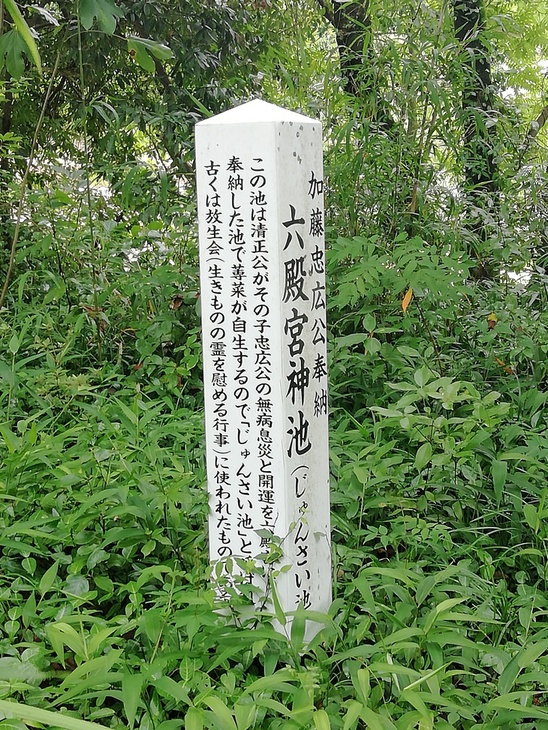 加藤忠広公奉納
六殿宮神池(じゅんさい池
この池は清正公がその子忠広公の無病息災と開運を六殿
奉納した池で蓴菜が自生するので「じゅんさい池」と
古くは放生会(生きものの霊を慰める行事)に使われたもの